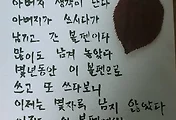 아버지 생각이 난다
아버지가 쓰시다가
남기고 간 볼펜이다
많이도 남겨 놓았다
몇년동안 이 볼펜으로
쓰고 또 쓰다보니
이제는 몇자루 남지 않았다